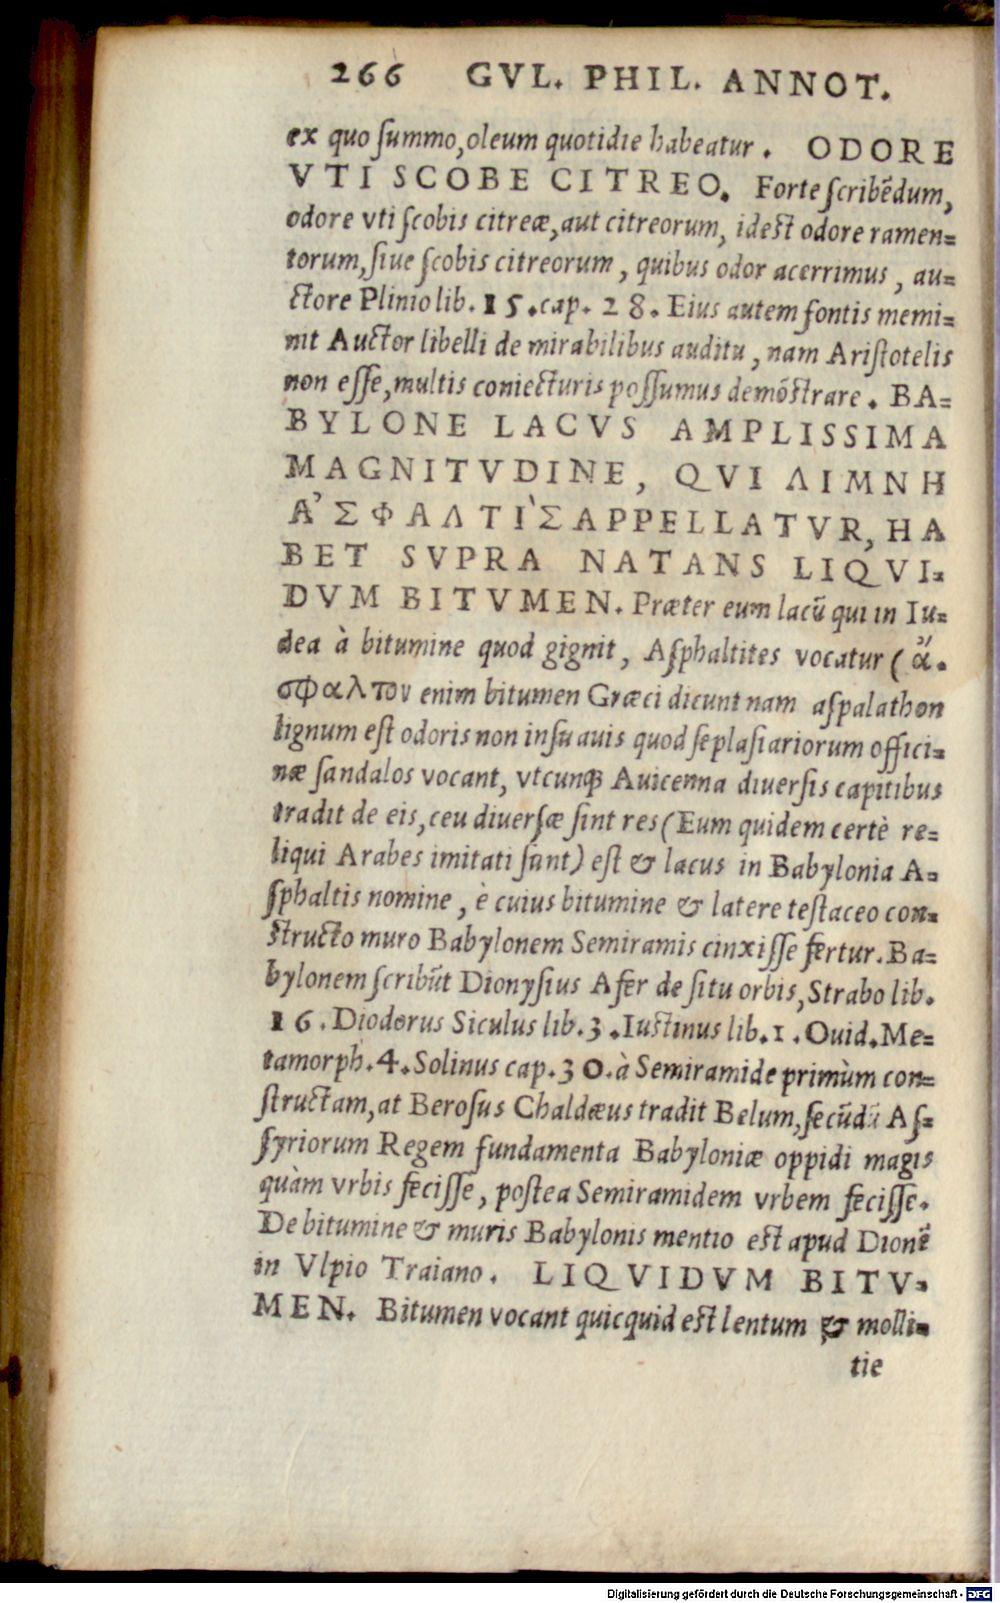 266 GVL. PHIL. ANNOT.
ex quo ſummo, oleum quotidie habeatur. ODORE
VTI SCOBE CITREO. Forte ſcribẽdum,
odore vti ſcobis citreæ, aut citreorum, ideſt odore ramen=
torum, ſiue ſcobis citreorum, quibus odor acerrimus, au=
ctore Plinio lib. 15. cap. 28. Eius autem fontis memi=
nit Auctor libelli de mirabilibus auditu, nam Ariſtotelis
non eſſe, multis coniecturis poſſumus demõſtrare. BA=
BYLONE LACVS AMPLISSIMA
MAGNITVDINE, QVI ΛΙΜΝΗ
Α᾿ΣΦΑΛΤΙ`Σ APPELLATVR, HA
BET SVPRA NATANS LIQVI=
DVM BITVMEN. Præter eum lacũ qui in Iu=
dea à bitumine quod gignit, Aſphaltites vocatur (ἄ=
σφαλτον enim bitumen Græci dicunt nam aſpalathon
lignum eſt odoris non inſuauis quod ſeplaſiariorum offici=
næ ſandalos vocant, vtcunq; Auicenna diuerſis capitibus
tradit de eis, ceu diuerſæ ſint res (Eum quidem certè re=
liqui Arabes imitati ſunt) eſt & lacus in Babylonia A=
ſphaltis nomine, è cuius bitumine & latere teſtaceo con=
ſtructo muro Babylonem Semiramis cinxiſſe fertur. Ba=
bylonem ſcribũt Dionyſius Afer de ſitu orbis, Strabo lib.
16. Diodorus Siculus lib. 3. Iuſtinus lib. 1. Ouid. Me=
tamorph. 4. Solinus cap. 30. à Semiramide primùm con=
ſtructam, at Beroſus Chaldæus tradit Belum, ſecũdũ Aſ=
ſyriorum Regem fundamenta Babyloniæ oppidi magis
quàm vrbis feciſſe, poſtea Semiramidem vrbem feciſſe.
De bitumine & muris Babylonis mentio eſt apud Dionẽ
in Vlpio Traiano. LIQVIDVM BITV=
MEN. Bitumen vocant quicquid eſt lentum & molli=
tie
Digitalisierung gefördert durch die Deutsche Forschungsgemeinschaft - DFG